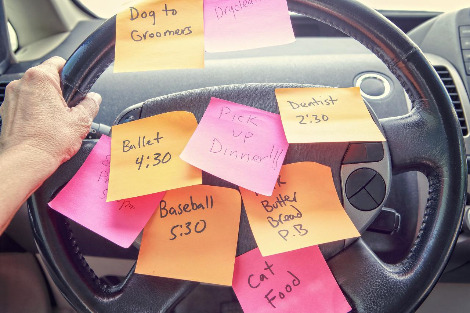 Dog to
Groomers
Drycleaning
Dentist
2:30
Pick
up
Dinner!!!
Ballet
4:30
Baseball
5:30
Butter
Bread
P.B
Cat
Food